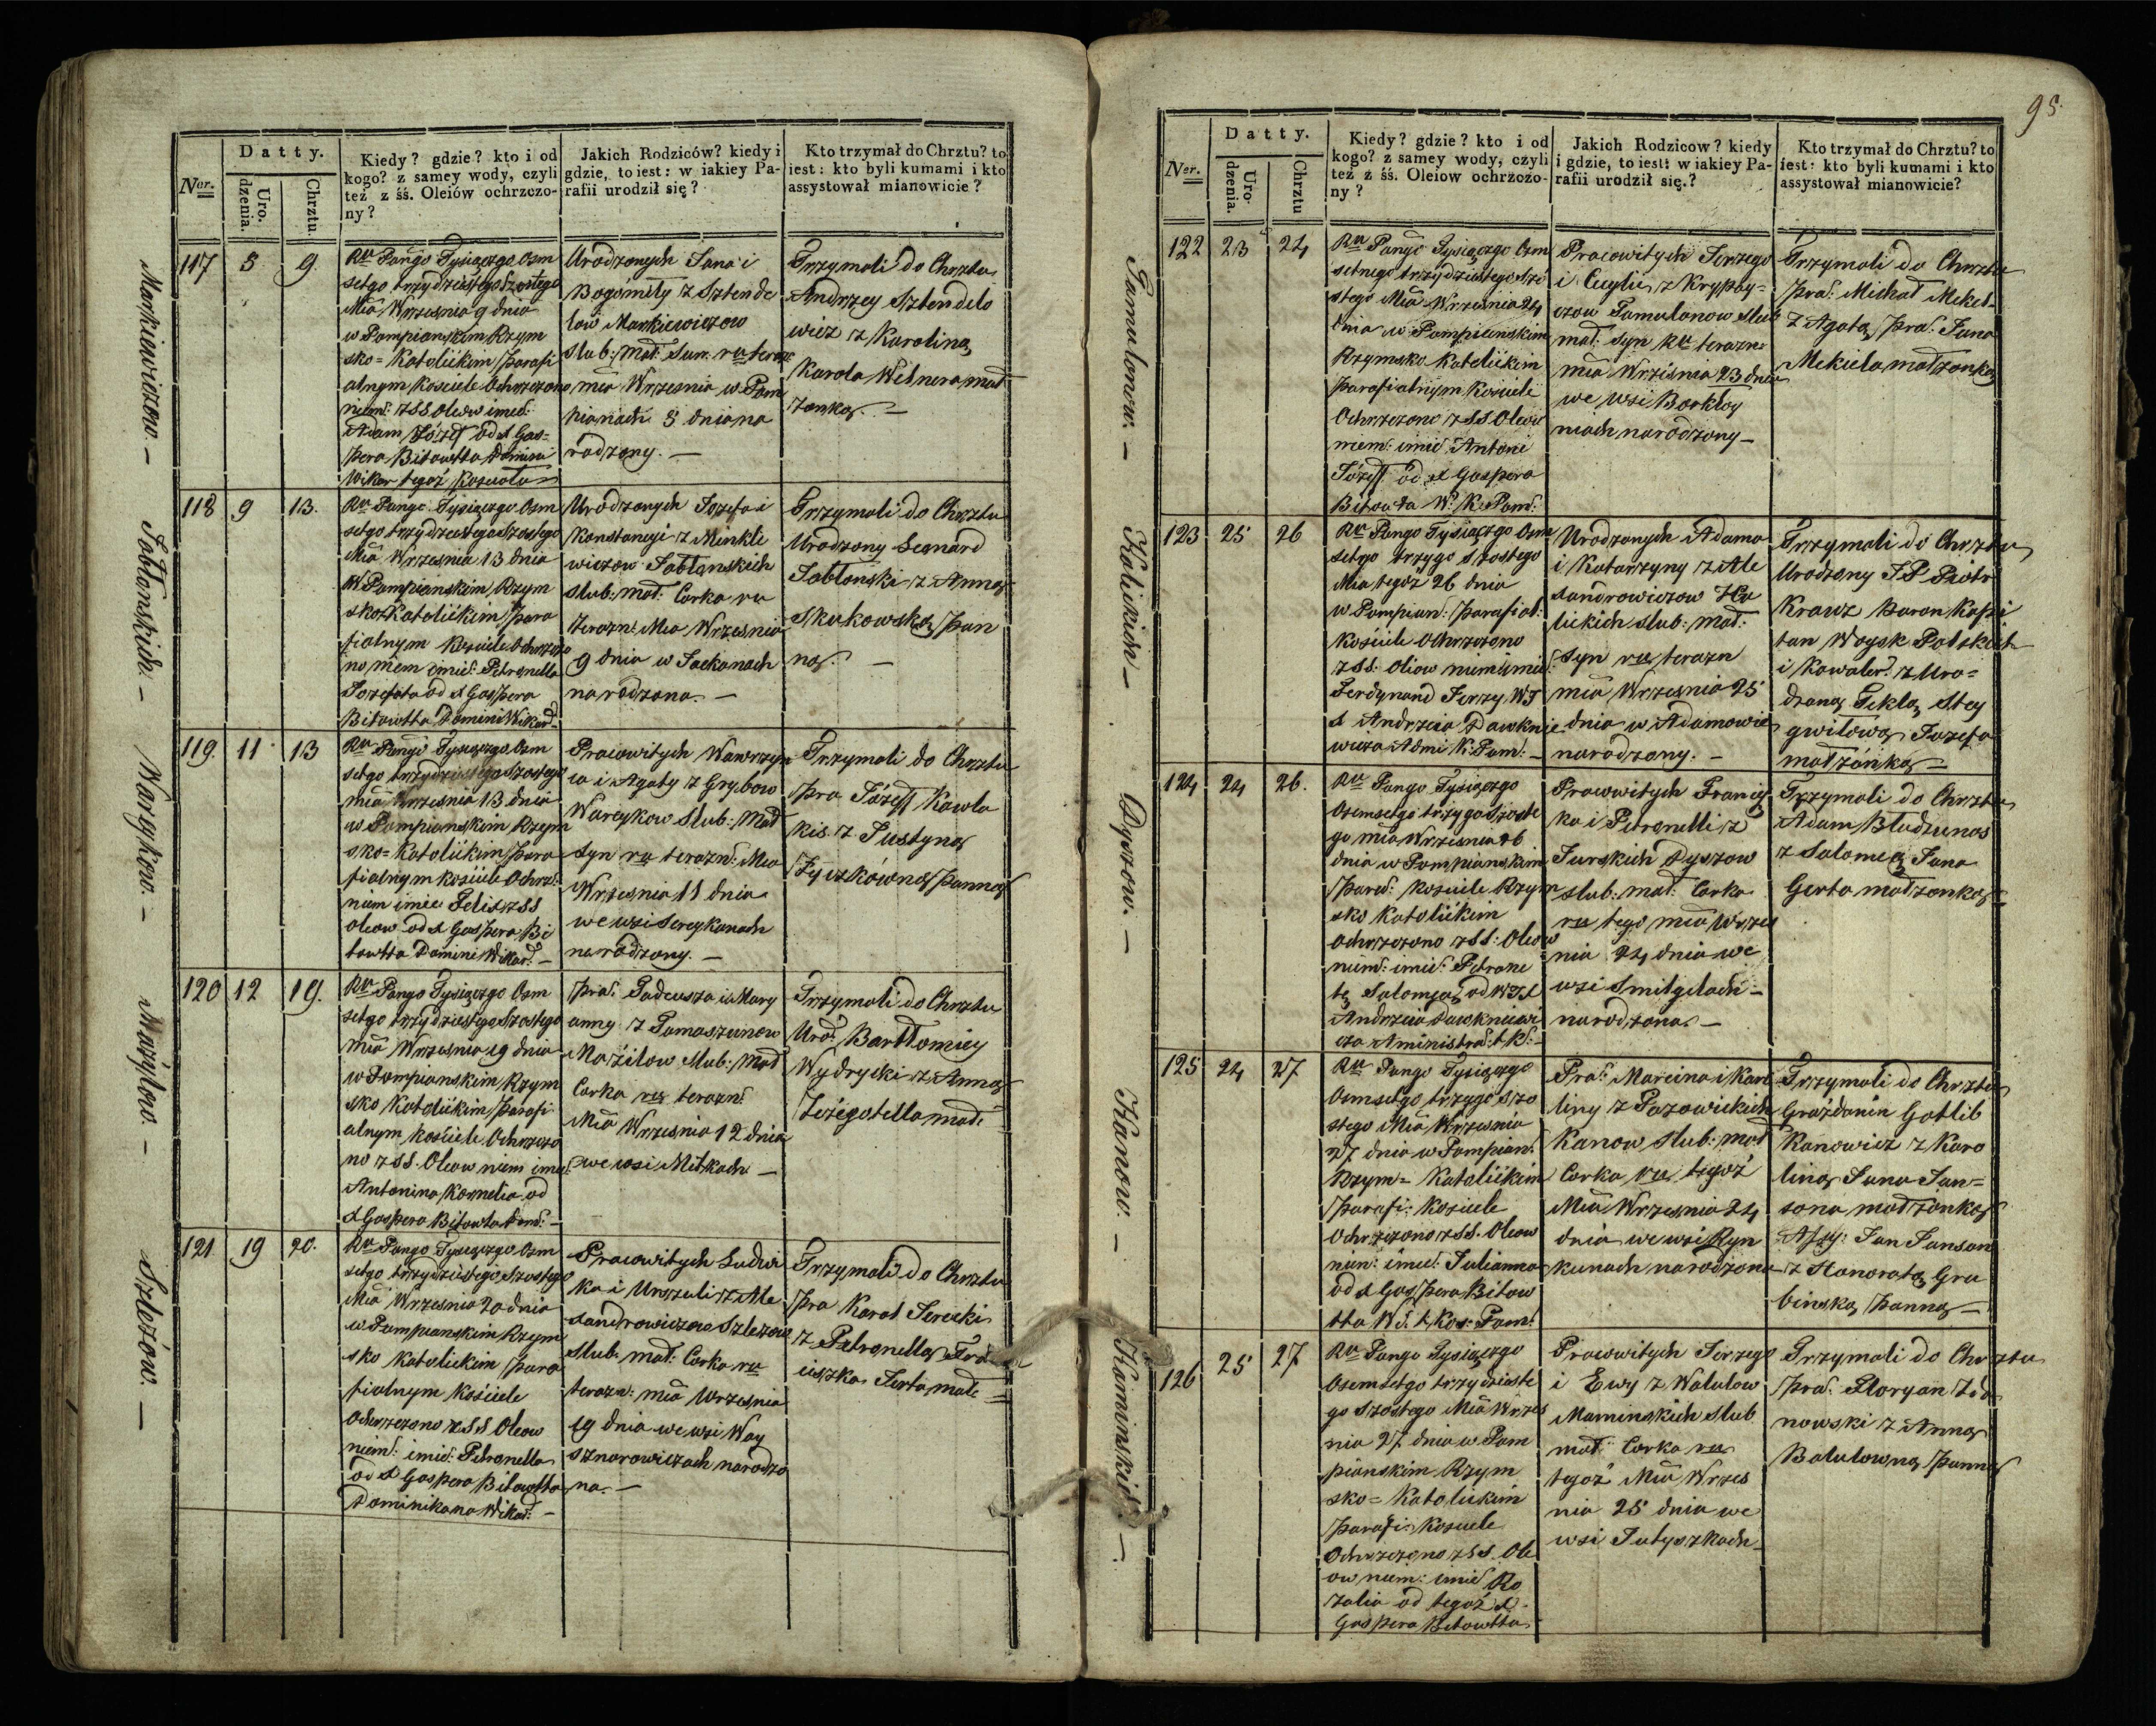 Markiewiczow. —
Jabłonskich. —
Wareykow. —
Mażylow. —
Szlezów. —
Ner.
Datty.
Uro.
dzenia.
Chrztu.
Kiedy? gdzie? kto i od
kogo? z samey wody, czyli
też z śś. Oleiów ochrzczo-
ny?
Jakich Rodziców? kiedy i
gdzie, to iest: w iakiey Pa-
rafii urodził się?
Kto trzymał do Chrztu? to
iest: kto byli kumami i kto
assystował mianowicie?
117 5 9
Ru Pańgo Tysiączgo Osm
setgo trzydziestego Szostego
Mca Wrzesnia 9 dnia
w Pompianskim Rzym
sko=Katolickim Parafi
alnym Kosciele Ochrzczono
niem: z SS Oleow imie:
Adam Józeff od X Gas=
pera Bitowtta Domini
Wikar tegoż Koscioła
Urodzonych Jana i
Bogumiły z Sztende
low Markiewiczow
Slub: Mał: Syn ru teraz
mca Wrzesnia w Pom
pianach 5 dnia na
rodzony. —
Trzymali do Chrztu
Andrzey Sztendelo
wicz z Karoliną
Karola Wilnera mał
żonką. —
118 9 13.
Ru Pango Tysiączgo Osm
setgo trzydziestego Szostego
Mca Wrzesnia 13 dnia
W Pompianskim Rzym
sko=Katolickim Para
fialnym Kosciele Ochrzczo
no niem imie: Petronella
Jozefata od X Gaspera
Bitowtta Domini Wikar: —
Urodzonych Jozefa i
Konstancyi z Minkie
wiczow Jabłonskich
slub: mał: Corka ru
terazn: Mca Wrzesnia
9 dnia w Jackanach
narodzona. —
Trzymali do Chrztu
Urodzony Leonard
Jabłonski z Anną
Skukowską Pan
ną. —
119. 11 13
Ru Pango Tysiączgo Osm
setgo trzydziestego Szostego
mca Wrzesnia 13 dnia
w Pompianskim Rzym
sko=Katolickim Para
fialnym kosciele Ochrz:
num imie Felis z SS
Oleow od X Gaspera Bi
towtta Domini Wikar: —
Pracowitych Wawrzyn
ca i Agaty z Grybow
Wareykow Slub: Mał
Syn ru terazn: Mca
Wrzesnia 11 dnia
we wsi Sereykanach
narodzony. —
Trzymali do Chrztu
Pra Józeff Kawla
kis z Justyną
Zyczkówną Panną
120 12 19.
Ru Pango Tysiączgo Osm
setgo trzydziestego Szostego
mca Wrzesnia 19 dnia
w Pompianskim Rzym
sko Katolickim Parafi
alnym Kosciele Ochrzczo
no z SS. Oleow niem imie:
Antonina Kornelia od
X Gaspera Bitowta Dom: —
Pra: Tadeusza i Mary
anny z Tomaszunow
Mażilow slub: Mał
Corka ru terazn:
Mca Wrzesnia 12 dnia
we wsi Mitkach —
Trzymali do Chrztu
Uro: Barttomiey
Wydrycki z Anną
Jozegotella mał:
121 19 20.
Ru Pango Tysiączgo Osm
setgo trzydziestego Szostego
Mca Wrzesnia 20 dnia
w Pompianskim Rzym
sko katolickim Para
fialnym Kościele
Ochrzczono z SS Oleow
niem: imie: Petronella
od X Gaspera Bitowtta
Dominikana Wikar: —
Pracowitych Ludwi
ka i Urszuli z Ale
xandrowiczow Szlezow
Slub: mał: Corka ru
terazn: mca Wrzesnia
19 dnia we wsi Way
sznorowiczach narodzo
na. —
Trzymali do Chrztu
Pra Karol Serecki
z Petronellą
ciszka Jerta małż =
95.
Tamulonow. —
Kolickich —
Dyszow. —
Kanow. —
Kaminskich —.
Ner.
Datty.
Uro-
dzenia.
Chrztu
Kiedy? gdzie? kto i od
kogo? z samey wody, czyli
też z śś. Oleiow ochrzczo-
ny?
Jakich Rodzicow? kiedy
i gdzie, to iest: w iakiey Pa-
rafii urodził się.?
Kto trzymał do Chrztu? to
iest: kto byli kumami i kto
assystował mianowicie?
122 23 24
Ru Pango Tysiączgo Osm
setnego trzydziestego Szo
stego Mca Wrzesnia 24
dnia w Pompianskim
Rzymsko Katolickim
Parafialnym Kosciele
Ochrzczono z SS Oleow
niem: imie: Antoni
Józeff od X Gaspera
Bitowta W. K. Pom:
Pracowitych Jerzego
i Cecylii z Krypay=
czow Tamulonow slub
mał: syn Ru terazn:
mca Wrzesnia 23 dnia
we wsi Borkłoy
niach narodzony —
Trzymali do Chrztu
Pra: Michał Mekel
z Agatą Pra: Jana
Mekiela małżonką
123 25 26
Ru Pango Tysiączgo Osm
setgo trzygo Szostego
Mca tegoż 26 dnia
w Pompian: Parafial:
Kosciele Ochrzczono
z SS. Oliow num imie:
Ferdynand Jerzy WJ
X Andrzeia Dawknie
wicza Admi K: Pom: —
Urodzonych Adama
i Katarzyny z Ale
xandrowiczow Ko
lickich slub: mał:
Syn ru terazn
mca Wrzesnia 25
dnia w Adamowie
narodzony. —
Trzymali do Chrztu
Urodzony JP Piotr
Krauz Baron Kapi
tan Woysk Polskich
i Kawaler: z Uro=
dzoną Teklą Stey
gwiłową Jozefa
małżónką —
124 24 26.
Ru Pango Tysiączgo
Osemsetgo trzygo Szoste
go mca Wrzesnia 26
dnia w Pompianskim
Paraf: Kosciele Rzym
sko Katolickim
Ochrzczono z SS: Oleow
niem: imie: Petrone
lę Salomeą od WJX
Andrzeia Dawkniewi
cza Aministra: t K: —
Pracowitych Francisz
ka i Petronelli z
Jurskich Dyszow
slub: mał: Corka
ru tego mca Wrzes
nia 24 dnia we
wsi Smilgelach —
narodzona. —
Trzymali do Chrztu
Adam Bludzunas
z Salomeą Jana
Gerta małżonką —
125 24 27
Ru Pango Tysiączgo
Osmsetgo trzygo Szo
stego Mca Wrzesnia
27 dnia w Pompian:
Rzym= Katolickim
Parafi: Kosciele
Ochrzczono z SS. Oleow
niem: imie: Julianna
od X Gaspera Bitow
tta W. t. Kos: Pom:
Pra: Marcina i Karo
liny z Pazowickich
Kanow slub: mał
Corka ru tegoż
Mca Wrzesnia 24
dnia we wsi Ryn
kunach narodzona
Trzymali do Chrztu
Grażdanin Gotlib
Kanowicz z Karo
liną Jana Jan=
sona małżonką
Assy: Jan Janson
z Honoratą Gru
binską Panną —
126 25 27
Ru Pango Tysiączgo
Osemsetgo trzydzieste
go Szostego Mca Wrzes
nia 27 dnia w Pom
pianskim Rzym
sko=Katolickim
Parafi: Kosciele
Ochrzczono z SS. Ole
ow niem: imie Ro
zalia od tegoż X.
Gaspera Bitowtta
Pracowitych Jerzego
i Ewy z Walulow
Maminskich slub
mał: Corka ru
tegoż Mca Wrzes
nia 25 dnia we
wsi Jutyszkach
Trzymali do Chrztu
Pra: Floryan
nowski z Anną
Balulowną Panną